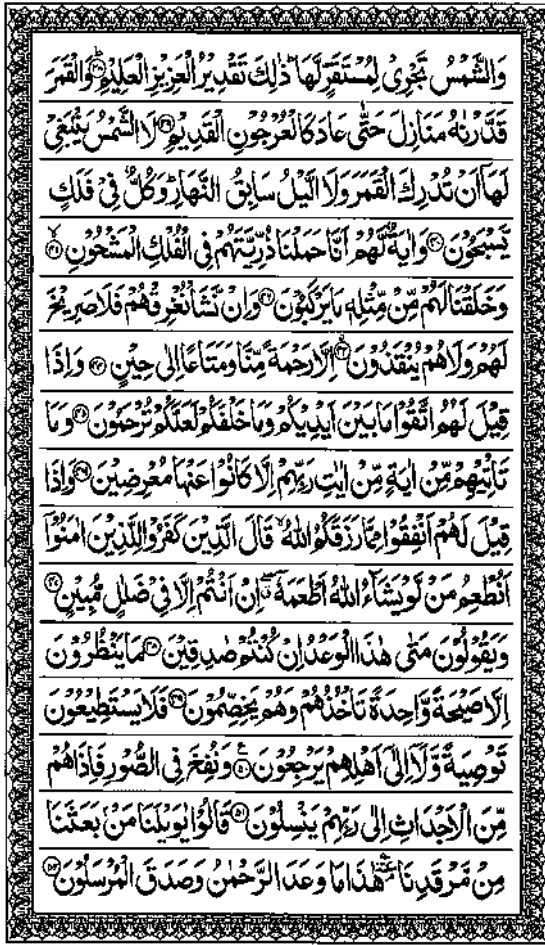 وَالشَّمْسُ تَجْرِيْ لِمُسْتَقَرٍّ لَّهَا ؕ ذٰلِكَ تَقْدِيْرُ الْعَزِيْزِ الْعَلِيْمِ ؕ﴿۳۸﴾ وَالْقَمَرَ
قَدَّرْنٰهُ مَنَازِلَ حَتّٰى عَادَ كَالْعُرْجُوْنِ الْقَدِيْمِ ﴿۳۹﴾ لَا الشَّمْسُ يَنْۢبَغِيْ
لَهَاۤ اَنْ تُدْرِكَ الْقَمَرَ وَلَا الَّيْلُ سَابِقُ النَّهَارِ ؕ وَكُلٌّ فِيْ فَلَكٍ
يَّسْبَحُوْنَ ﴿۴۰﴾ وَاٰيَةٌ لَّهُمْ اَنَّا حَمَلْنَا ذُرِّيَّتَهُمْ فِي الْفُلْكِ الْمَشْحُوْنِ ۙ﴿۴۱﴾
وَخَلَقْنَا لَهُمْ مِّنْ مِّثْلِهٖ مَا يَرْكَبُوْنَ ﴿۴۲﴾ وَاِنْ نَّشَاْ نُغْرِقْهُمْ فَلَا صَرِيْخَ
لَهُمْ وَلَا هُمْ يُنْقَذُوْنَ ۙ﴿۴۳﴾ اِلَّا رَحْمَةً مِّنَّا وَمَتَاعًا اِلٰى حِيْنٍ ﴿۴۴﴾ وَاِذَا
قِيْلَ لَهُمُ اتَّقُوْا مَا بَيْنَ اَيْدِيْكُمْ وَمَا خَلْفَكُمْ لَعَلَّكُمْ تُرْحَمُوْنَ ﴿۴۵﴾ وَمَا
تَاْتِيْهِمْ مِّنْ اٰيَةٍ مِّنْ اٰيٰتِ رَبِّهِمْ اِلَّا كَانُوْا عَنْهَا مُعْرِضِيْنَ ﴿۴۶﴾ وَاِذَا
قِيْلَ لَهُمْ اَنْفِقُوْا مِمَّا رَزَقَكُمُ اللّٰهُ ۙ قَالَ الَّذِيْنَ كَفَرُوْا لِلَّذِيْنَ اٰمَنُوْۤا
اَنُطْعِمُ مَنْ لَّوْ يَشَآءُ اللّٰهُ اَطْعَمَهٗۤ ۖ اِنْ اَنْتُمْ اِلَّا فِيْ ضَلٰلٍ مُّبِيْنٍ ﴿۴۷﴾
وَيَقُوْلُوْنَ مَتٰى هٰذَا الْوَعْدُ اِنْ كُنْتُمْ صٰدِقِيْنَ ﴿۴۸﴾ مَا يَنْظُرُوْنَ
اِلَّا صَيْحَةً وَّاحِدَةً تَاْخُذُهُمْ وَهُمْ يَخِصِّمُوْنَ ﴿۴۹﴾ فَلَا يَسْتَطِيْعُوْنَ
تَوْصِيَةً وَّلَاۤ اِلٰۤى اَهْلِهِمْ يَرْجِعُوْنَ ؑ﴿۵۰﴾ وَنُفِخَ فِي الصُّوْرِ فَاِذَا هُمْ
مِّنَ الْاَجْدَاثِ اِلٰى رَبِّهِمْ يَنْسِلُوْنَ ﴿۵۱﴾ قَالُوْا يٰوَيْلَنَا مَنْۢ بَعَثَنَا
مِنْ مَّرْقَدِنَا ۘ هٰذَا مَا وَعَدَ الرَّحْمٰنُ وَصَدَقَ الْمُرْسَلُوْنَ ﴿۵۲﴾